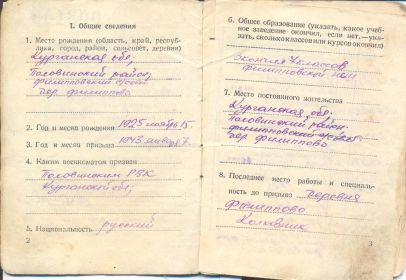 I. Общие сведения
1. Место рождения (область, край, респуб-
лика, город, район, сельсовет, деревня)
Курганская обл,
Половинский район,
филипповский
дер филиппово
2. Год и месяц рождения 1925 ноябрь 15.
3. Год и месяц призыва 1943 январь 7
4. Каким военкоматом призван
Половинским РВК
Курганской обл,
5. Национальность русский
2
6. Общее образование (указать, какое учеб-
ное заведение окончил, если нет,—ука-
зать, сколько классов или курсов окончил)
окончил классов
филипповской
7. Место постоянного жительства
Курганская обл.
Половинский район
филипповский
дер филиппово
8. Последнее место работы и специаль-
ность до призыва деревня
филиппово
Колхозник
3